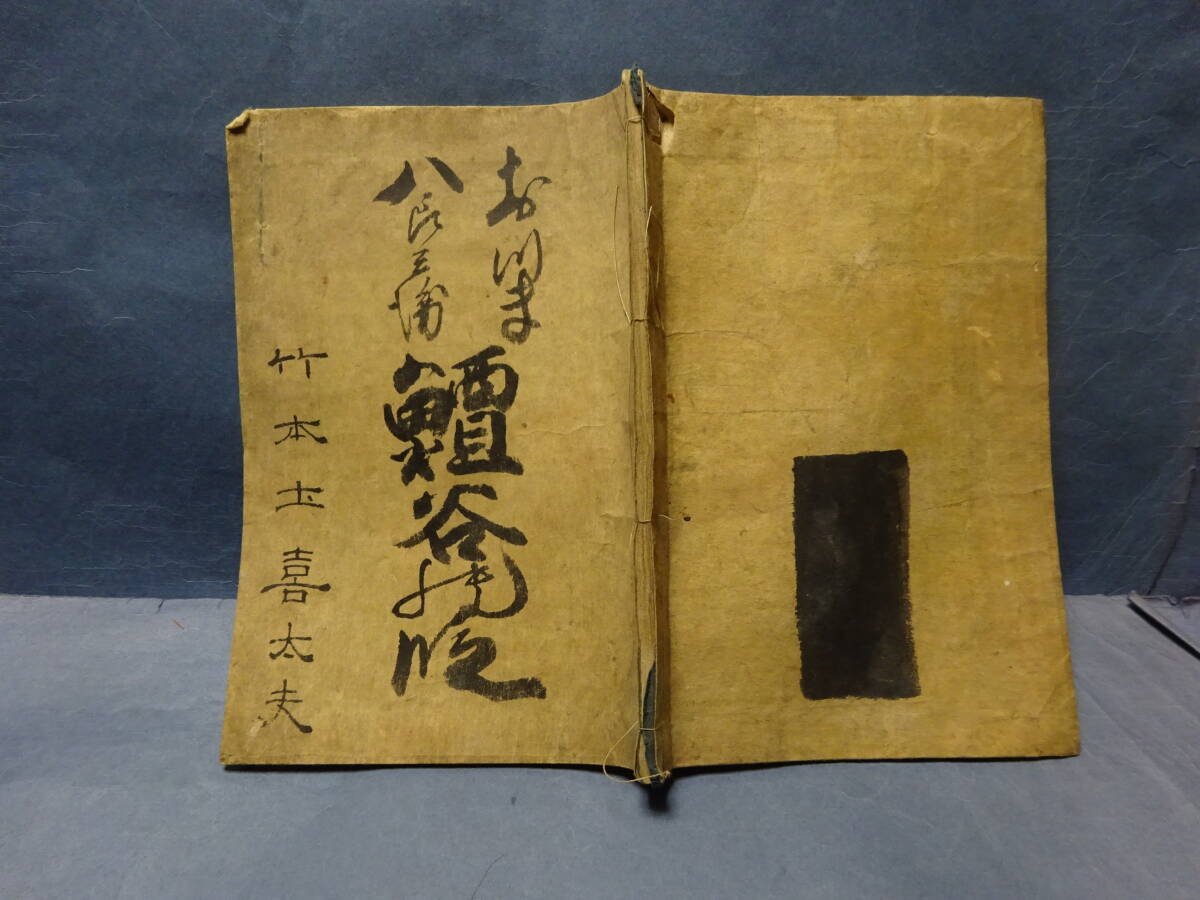 おつま
八良兵衛
鱣谷の段
竹本土喜太夫